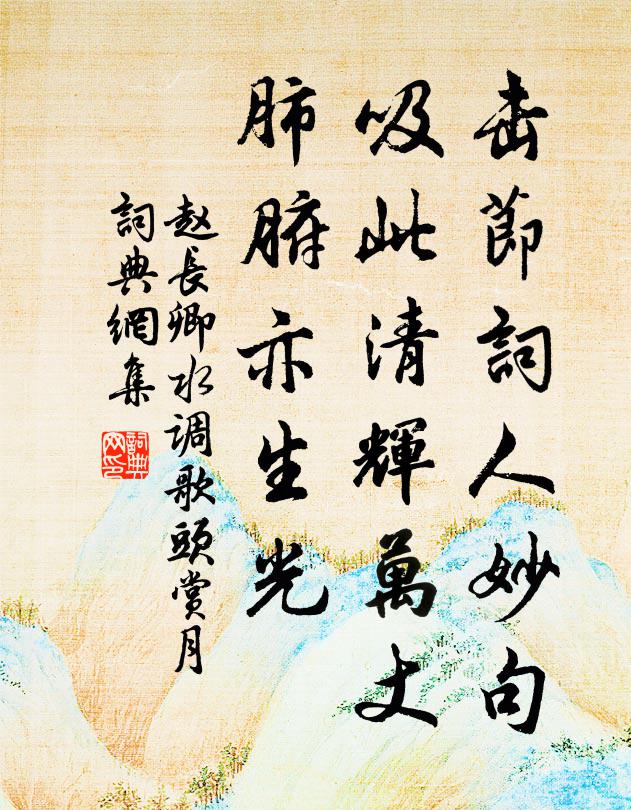 击節詞人妙句
吸此清輝萬丈
肺腑亦生光
赵長卿水调歌頭赏月
詞典網集
詞典
网印